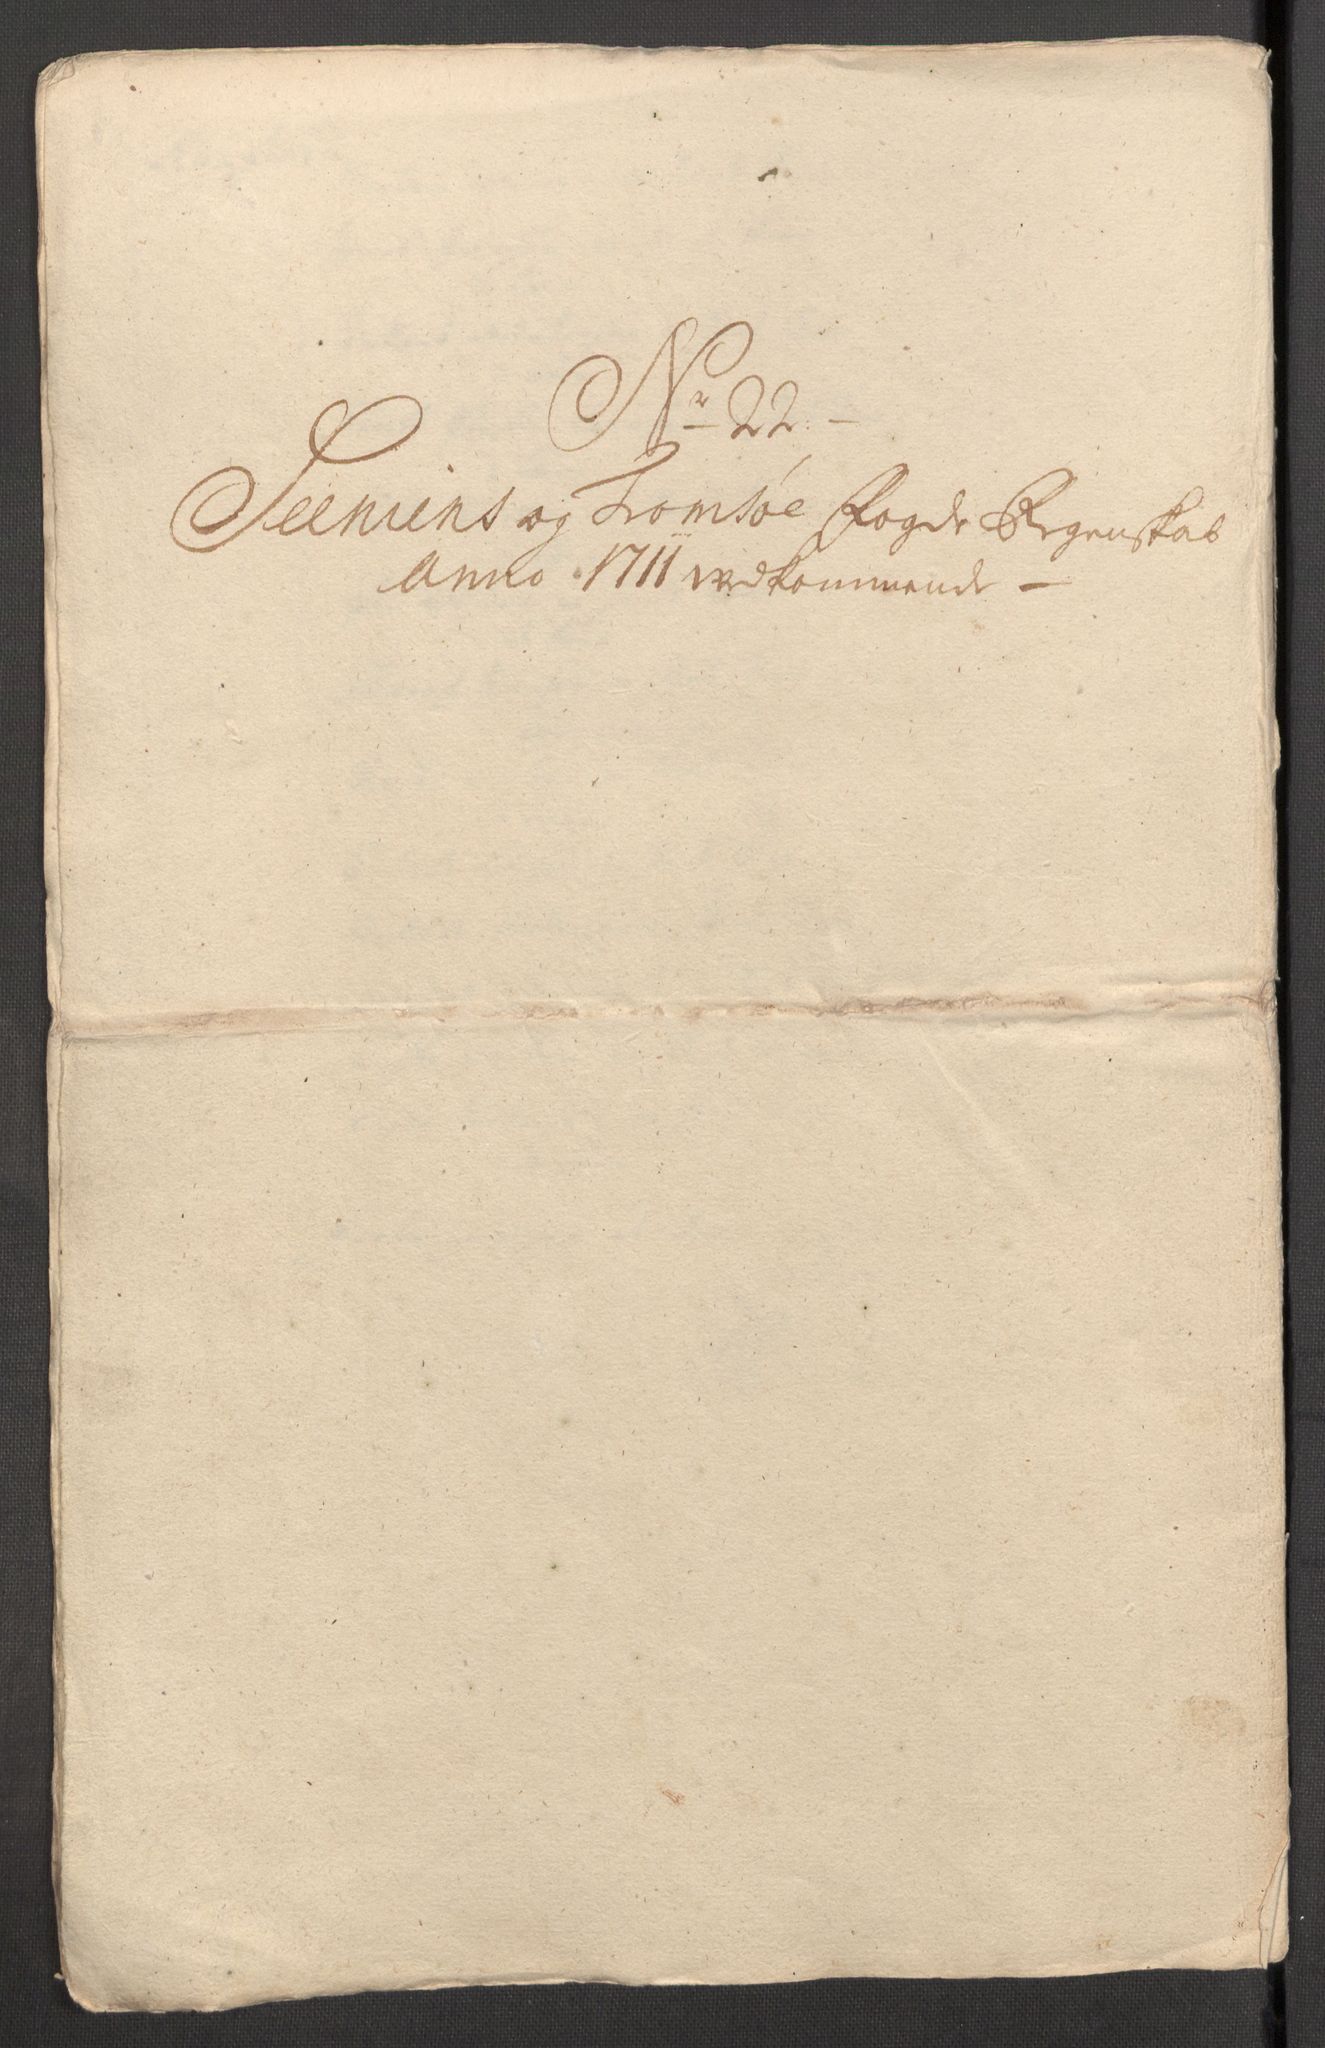 Nr 22 –
Seeniens og Tromsøe Fogde Regenskab
Anno 1711 vedkommende –